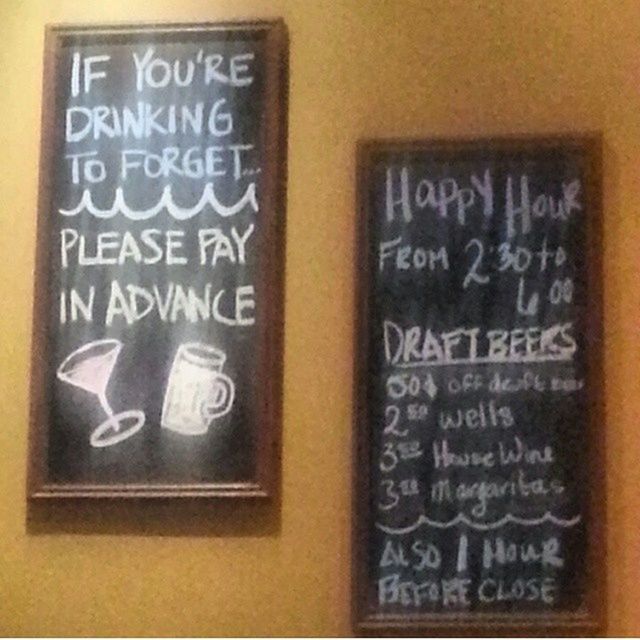 IF YOU'RE
DRINKING
TO FORGET...
PLEASE PAY
IN ADVANCE
HAPPY HOUR
FROM 2:30 to
6:00
DRAFT BEERS
50¢ off draft beer
2.50 wells
House Wine
Margaritas
ALSO 1 HOUR
BEFORE CLOSE